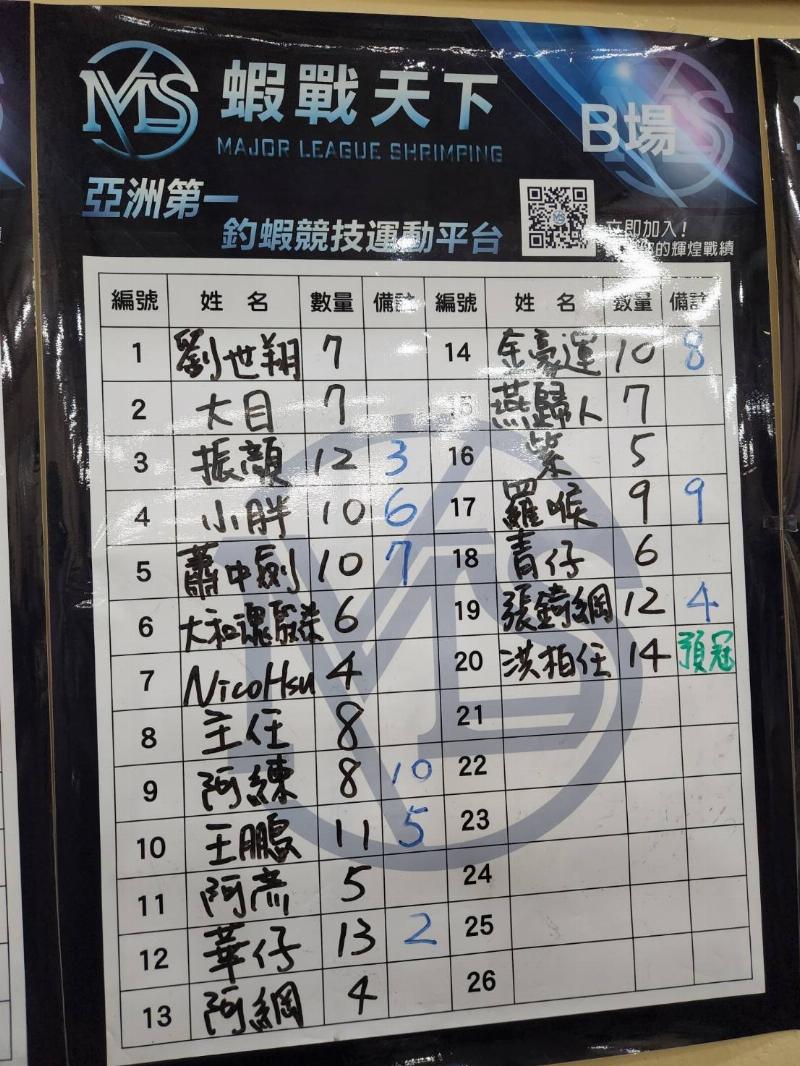 MLS 蝦戰天下
MAJOR LEAGUE SHRIMPING
B場
亞洲第一
釣蝦競技運動平台
立即加入!
的輝煌戰績
編號 姓名 數量 備註 編號 姓名 數量 備註
1 劉世翔 7 14 余豪運 10 8
2 大目 7 15 燕歸人 7
3 振顏 12 3 16 紫 5
4 小胖 10 6 17 羅喉 9 9
5 蕭中劍 10 7 18 青仔 6
6 大和魂 6 19 張錡綱 12 4
7 NicoHsu 4 20 洪柏任 14 預冠
8 主任 8 21
9 阿練 8 10 22
10 王鵬 11 5 23
11 阿彥 5 24
12 華仔 13 2 25
13 阿綱 4 26